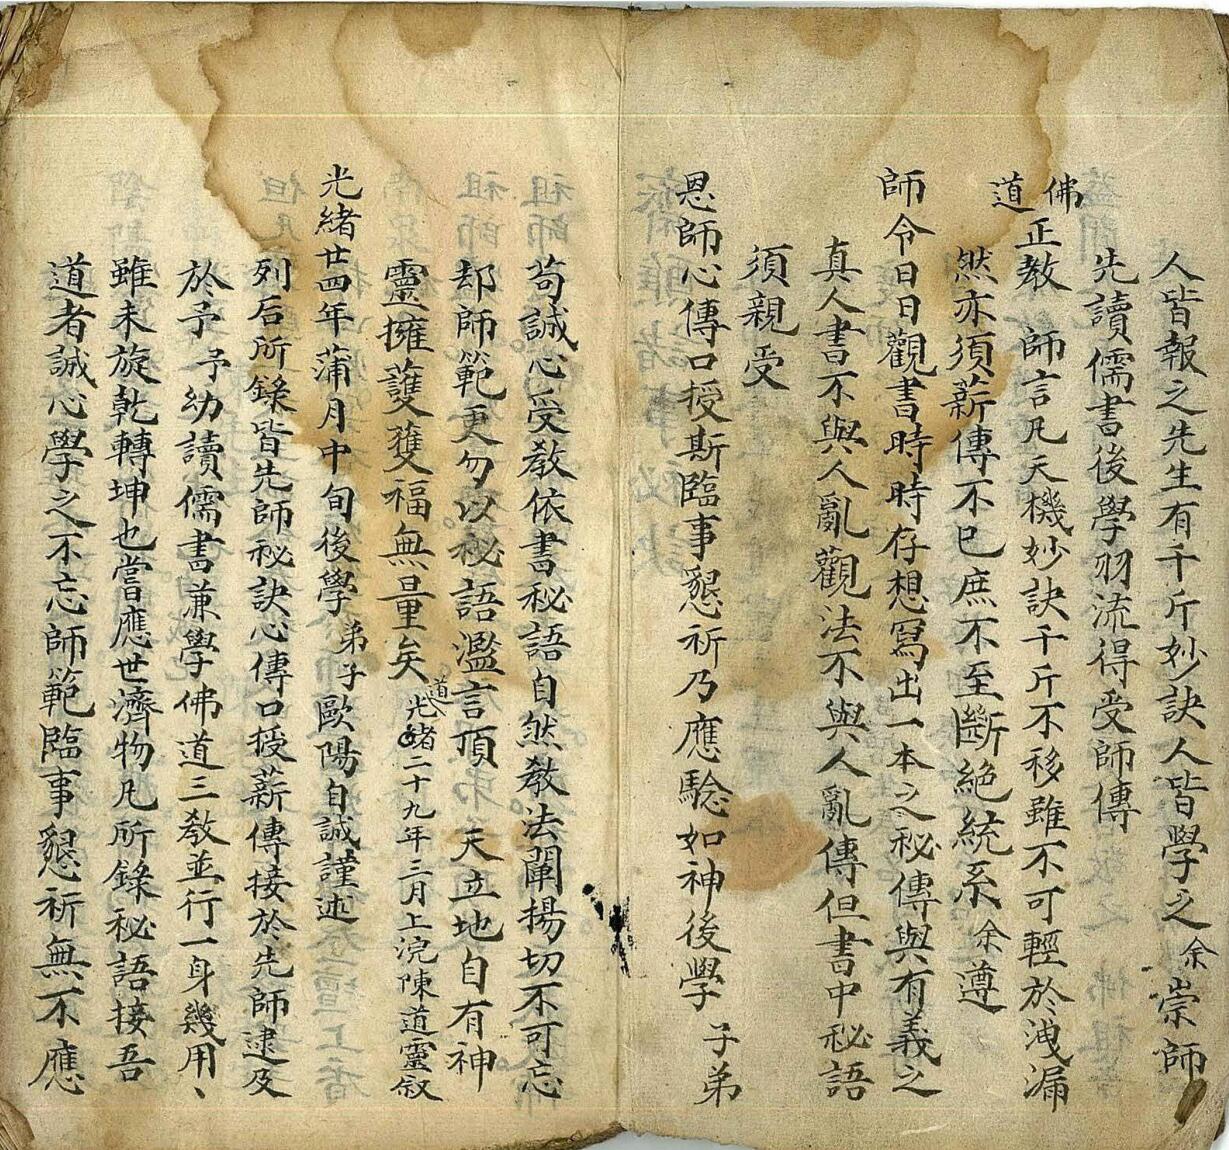 人皆報之先生有千斤妙訣人皆學之余崇師
先讀儒書後學羽流得受師傳
佛道正教 師言凡天機妙訣千斤不移雖不可輕於洩漏
然亦須薪傳不已庶不至斷絕統系余遵
師令日日觀書時時存想寫出一本之秘傳與有義之
真人書不與人亂觀法不與人亂傳但書中秘語
須親受
恩師心傳口授斯臨事懇祈乃應驗如神後學 子弟
苟誠心受教依書秘語自然教法闡揚切不可忘
却師範更勿以秘語濫言項弟 天立地自有神
靈擁護獲福無量矣 道光緒二十九年三月上浣陳道靈叙
光緒廿四年蒲月中旬後學弟子歐陽自誠謹述
列后所錄皆先師秘訣心傳口授薪傳接於先師逮及
於予予幼讀儒書兼學佛道三教並行一身幾用、
雖未旋乾轉坤也嘗應世濟物凡所錄秘語接吾
道者誠心學之不忘師範臨事懇祈無不應